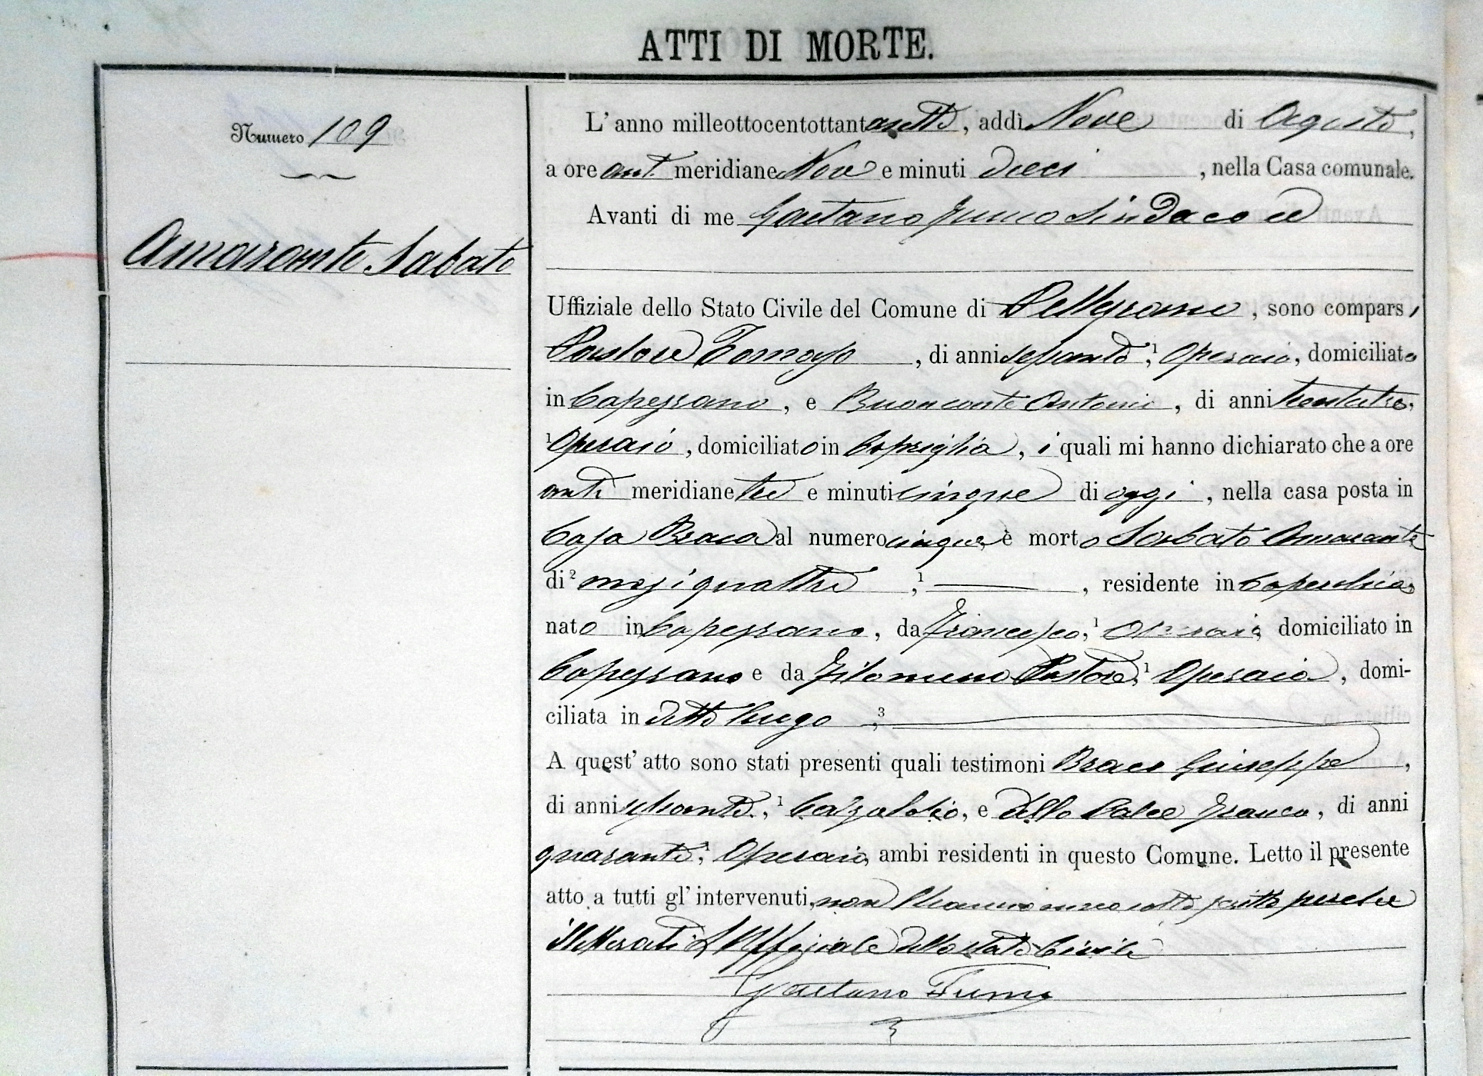 ATTI DI MORTE.
Numero 109
Amarante Sabato
L' anno milleottocentottant , addì Nove di Agosto,
a ore ant. meridiane Nove e minuti dieci , nella Casa comunale.
Avanti di me Gaetano Fumo Sindaco ed
Uffiziale dello Stato Civile del Comune di Pellezzano, sono comparsi
Pastore Tomaso , di anni sessanta, ¹ Operaio, domiciliato
in Capezzano, e Buonconte Antonio, di anni trentatre,
¹ Operaio, domiciliato in Capriglia, i quali mi hanno dichiarato che a ore
anti meridiane tre e minuti cinque di oggi, nella casa posta in
Casa Braca al numero cinque, è morto Sabato Amarante
di ² mesi quattro ,¹ , residente in
nato in Capezzano, da Francesco, ¹ Operaio, domiciliato in
Capezzano e da Filomena Pastore, ¹ Operaia, domi-
ciliata in detto luogo ,³
A quest' atto sono stati presenti quali testimoni Braca Giuseppe ,
di anni sessanta, ¹ Calzolaio, e , di anni
quaranta, ¹ Operaio, ambi residenti in questo Comune. Letto il presente
atto a tutti gl' intervenuti, non l'hanno meco sottoscritto perchè
illetterati L'Uffiziale dello stato Civile
Gaetano Fumo